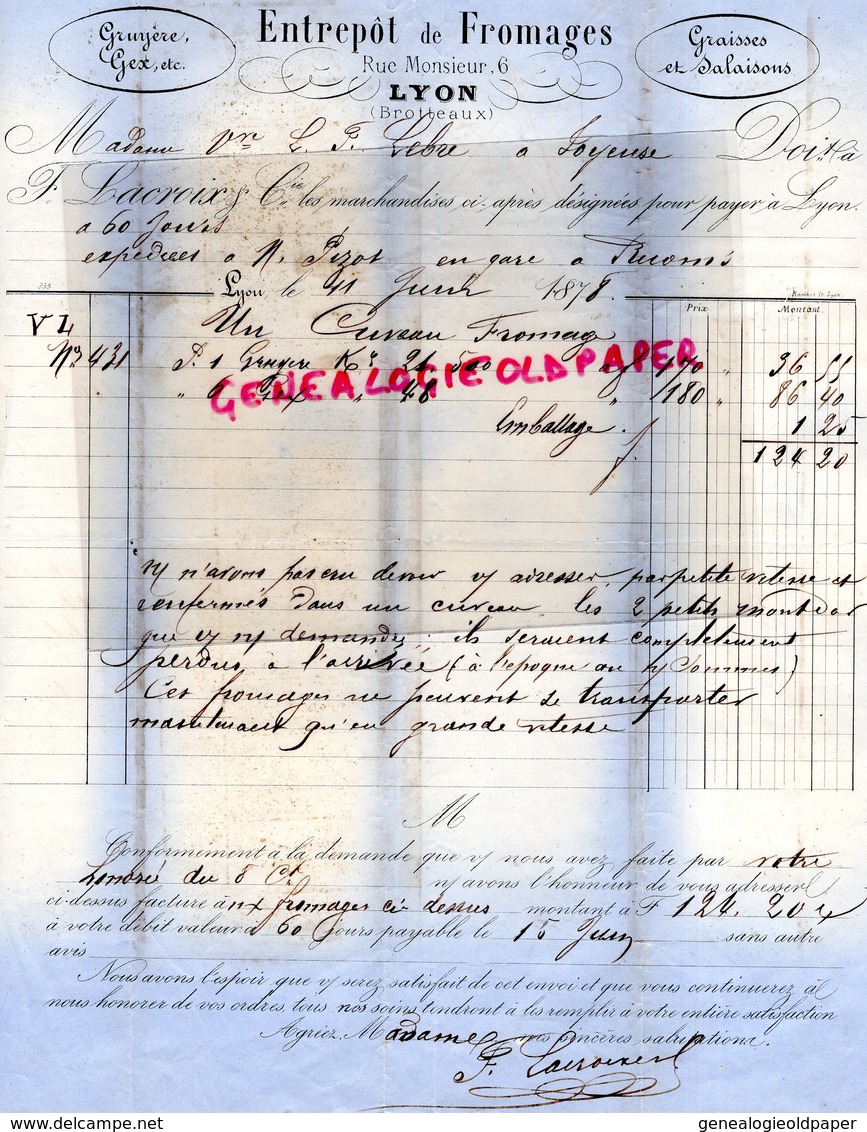 Gruyère,
Gex, etc.
Entrepôt de Fromages
Rue Monsieur, 6
LYON
(Brotteaux)
Graisses
et Salaisons
Madame Vve L. P. Lebre a Joyeuse Doit à
F. Lacroix & Cie les marchandises ci-après désignées pour payer à Lyon.
a 60 Jours
expediees a N. Pizot en gare a Ruoms
Lyon, le 11 Juin 1878
Prix Montant
V L Un Cuveau Fromage
No 431 P. 1 Gruyere Ks 21 500 170 " 36 55
GENEALOGIEOLDPAPER
" 6 Gex " 48 " 180 " 86 40
Emballage. 1 25
f. 124 20
N/ n'avons pas cru devoir v/ adresser, par petite vitesse et
renfermés dans un cuveau, les 2 petits mont d'or
que v/ n/ demandez; ils seraient completement
perdus, a l'arrivée (à l'epoque ou n/ sommes)
Ces fromages ne peuvent se transporter
maintenant qu'en grande vitesse
M
Conformément à la demande que v/ nous avez faite par votre
du 8 Ct n/ avons l'honneur de vous adresser
ci-dessus facture à nx fromages ci-dessus montant à F 124. 20
à votre débit valeur à 60 jours payable le 15 sans autre
avis
Nous avons l'espoir que v/ serez satisfait de cet envoi et que vous continuerez à
nous honorer de vos ordres, tous nos soins tendront à les remplir à votre entière satisfaction
Agréez, Madame, nos sincères salutations.
F. Lacroix
genealogieoldpaper genealogieoldpaper